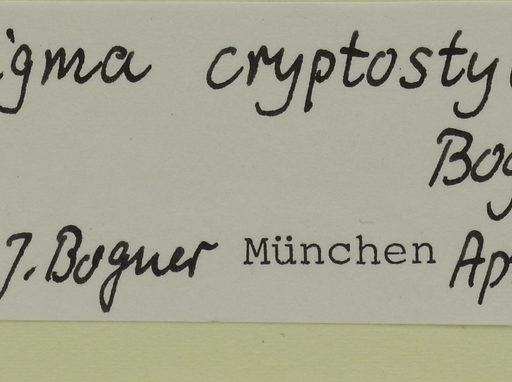 igma cryptosty
Bog
J. Bogner München Ap